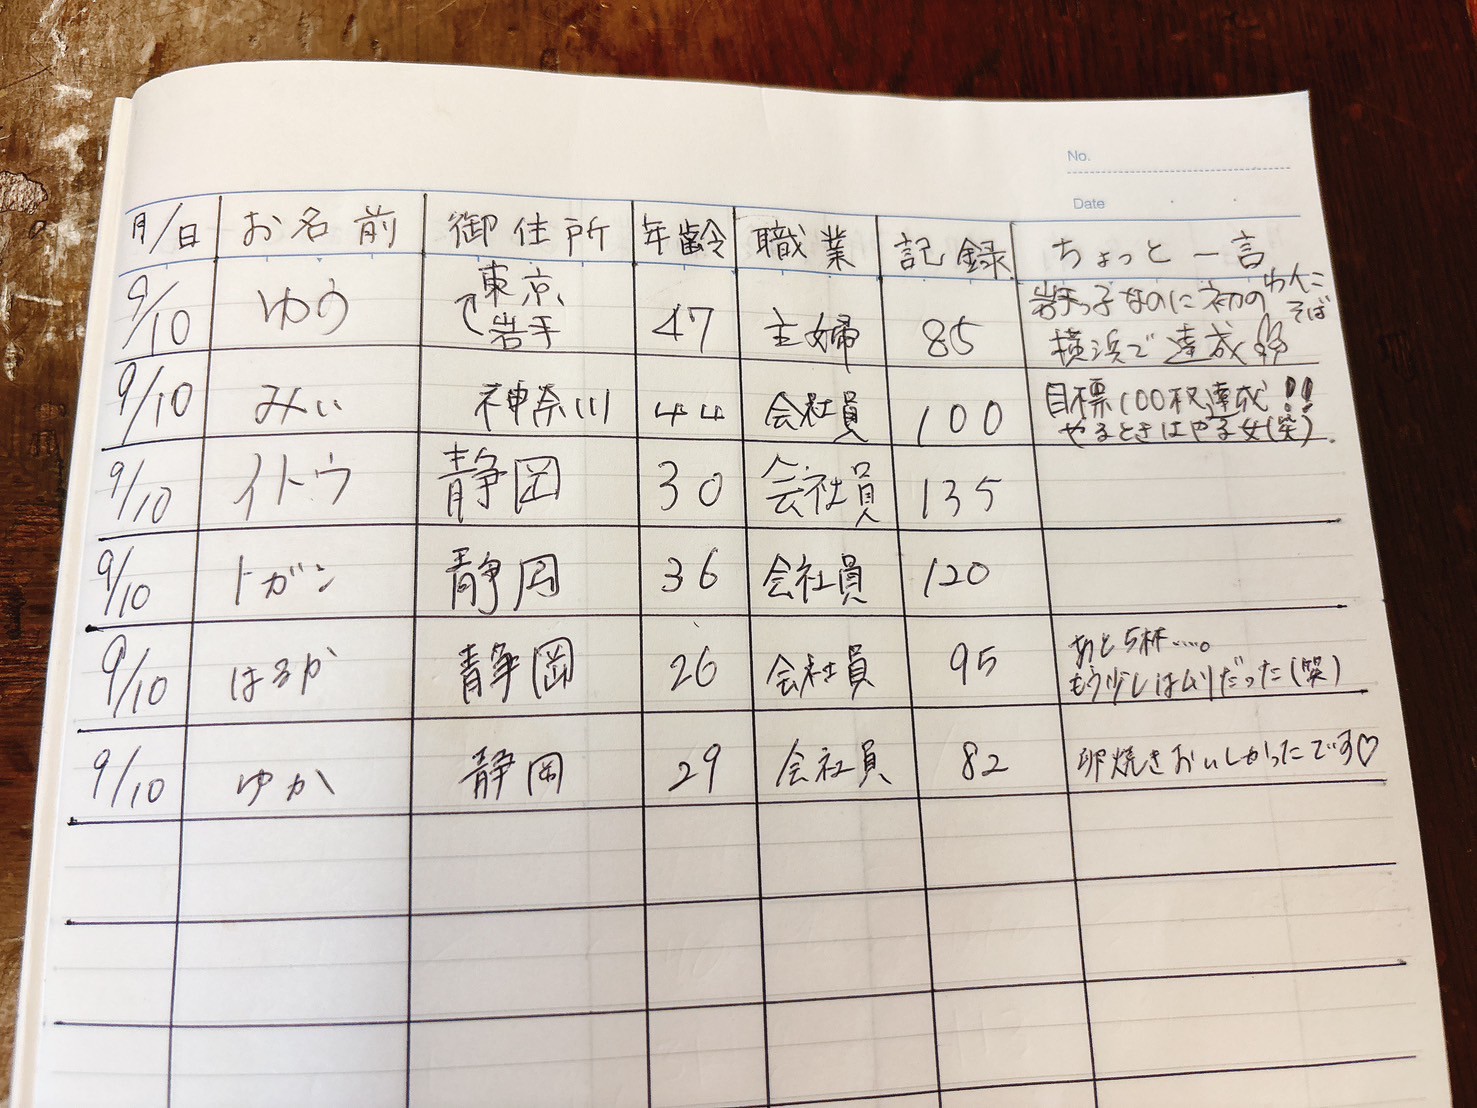 No.
Date
月/日 お名前 御住所 年齢 職業 記録 ちょっと一言
9/10 ゆう 東京 岩手 47 主婦 85 岩手っ子なのに初のわんこそば
横浜で達成
9/10 みぃ 神奈川 44 会社員 100 目標100杯達成!!
やるときはやる女(笑)
9/10 イトウ 静岡 30 会社員 135
9/10 トガシ 静岡 36 会社員 120
9/10 はるか 静岡 26 会社員 95 あと5杯……。
もう少しはムリだった(笑)
9/10 ゆか 静岡 29 会社員 82 卵焼きおいしかったです♡